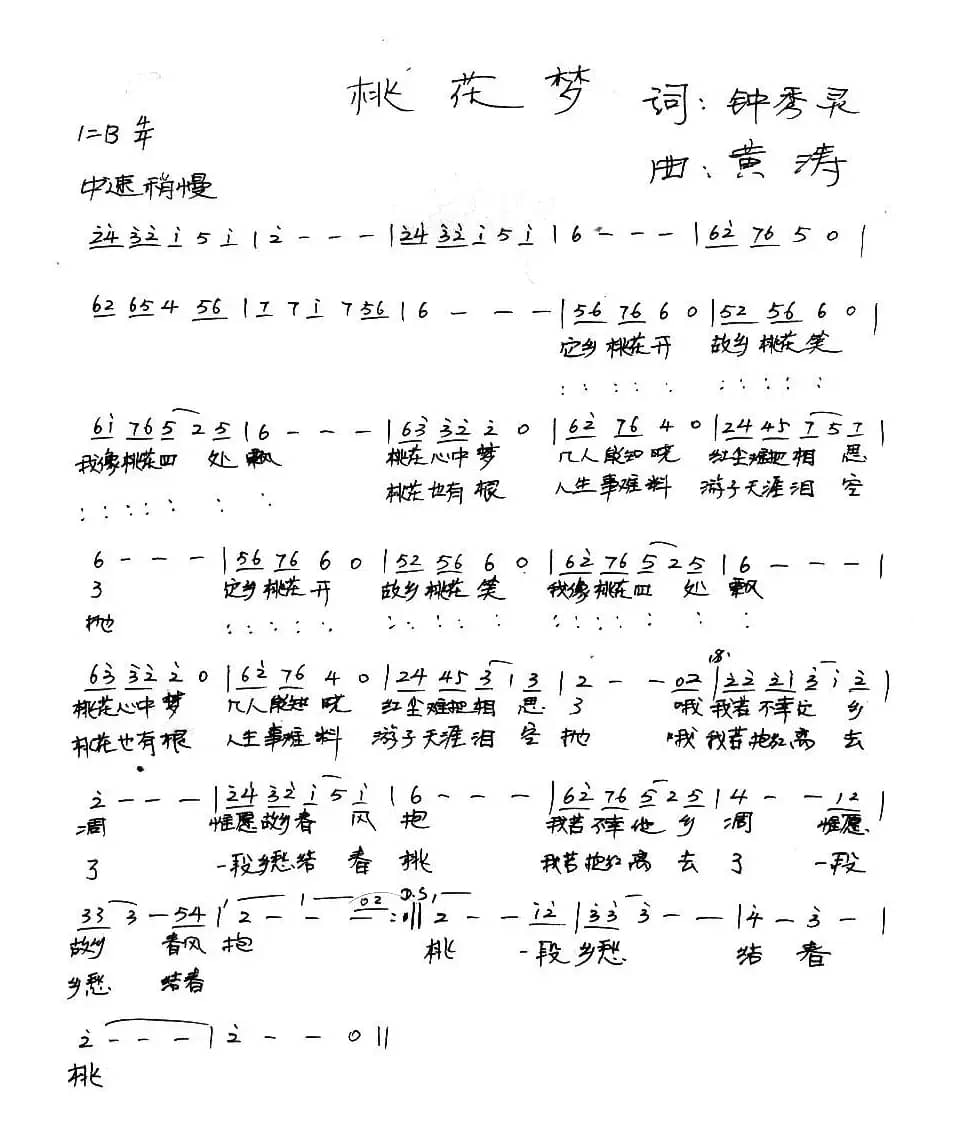 桃花梦
词：钟秀灵
1=B 4/4
曲：黄涛
中速稍慢
24 32 i 5 i | 2 - - - | 24 32 i 5 i | 6 - - - | 62 76 5 0 |
62 65 4 56 | 7 7 i 7 56 | 6 - - - | 56 76 6 0 | 52 56 6 0 |
它乡桃花开 故乡桃花笑
: : : : : : : : : :
6i 765 2 5 | 6 - - - | 63 32 2 0 | 62 76 4 0 | 24 45 7 5 7 |
我像桃花四 处飘 桃花心中梦 几人能知晓 红尘难把相 思
: : : : : : : 桃花也有根 人生事难料 游子天涯泪 空
6 - - - | 56 76 6 0 | 52 56 6 0 | 62 76 5 2 5 | 6 - - - |
了 它乡桃花开 故乡桃花笑 我像桃花四 处 飘
抛 : : : : : : : : : : : : : : : : :
63 32 2 0 | 62 76 4 0 | 24 45 3 i 3 | 2 - - 02 | 22 21 3 i 2 |
桃花心中梦 几人能知晓 红尘难把相 思 了 哦 我若不幸它 乡
桃花也有根 人生事难料 游子天涯泪 空 抛 哦 我若抱红离 去
2 - - - | 24 32 i 5 i | 6 - - - | 62 76 5 2 5 | 4 - - 12 |
凋 惟愿故乡春 风 抱 我若不幸他 乡 凋 惟愿
了 一段乡愁结 春 桃 我若抱红离 去 了 一段
33 3 - 54 | 2 - - - 02 :|| D.S. 2 - - i2 | 33 3 - - | 4 - 3 - |
故乡 春风 抱 桃 一段 乡愁 结 春
乡愁 结春
2 - - - | 2 - - 0 ||
桃